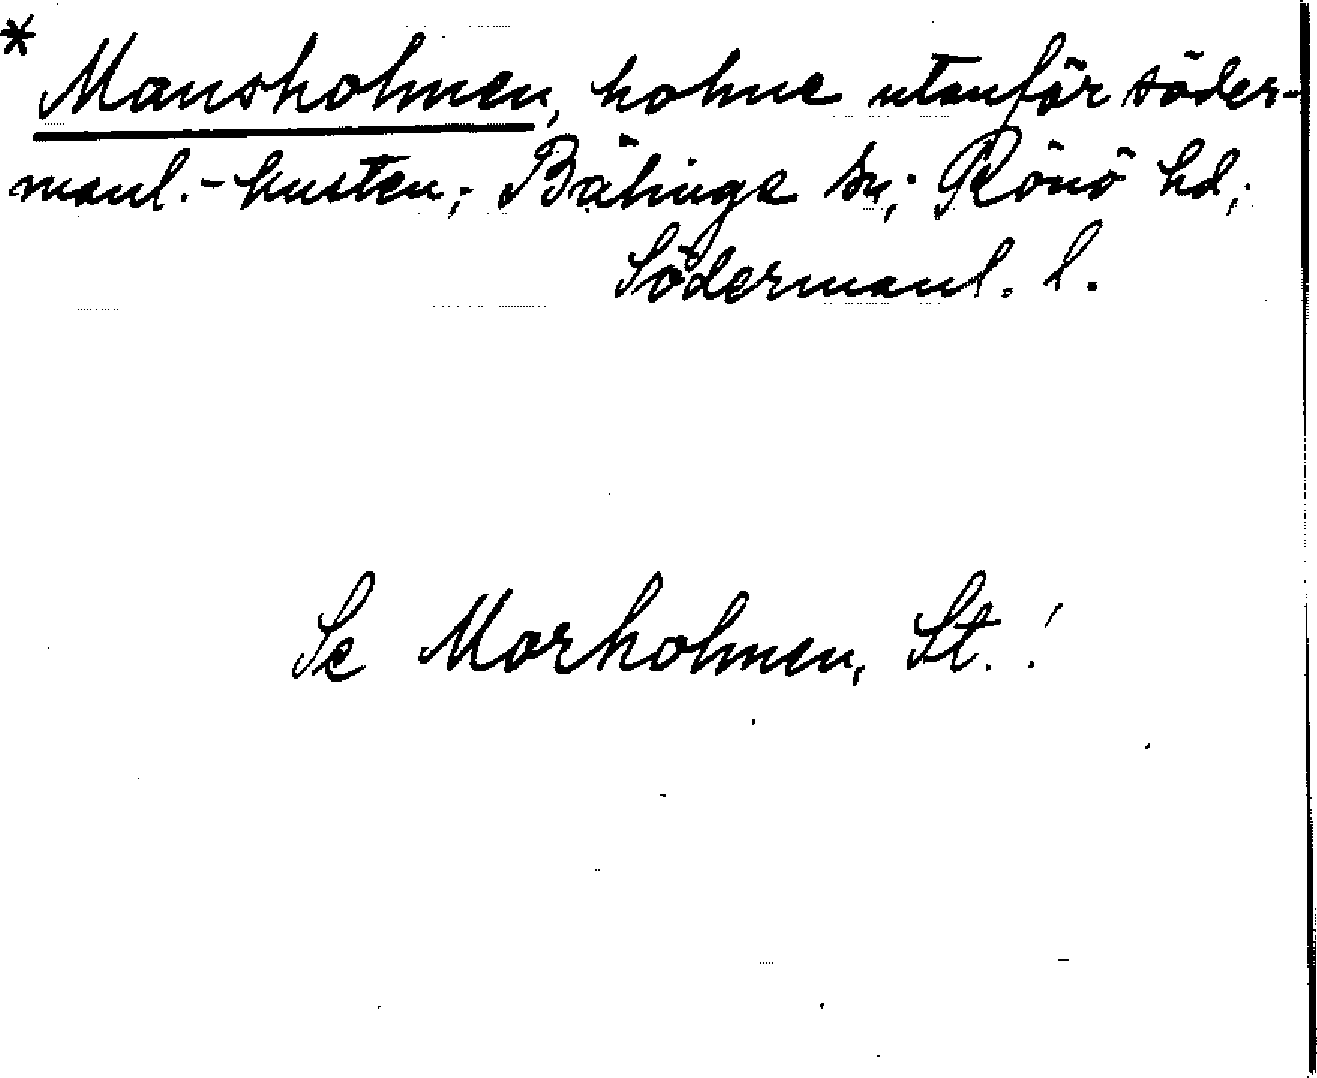 * Mansholmen, holme utanför söder-
manl.-kusten; Bälinge sn; Rönö hd;
Södermanl. l.
Se Morholmen, St.!